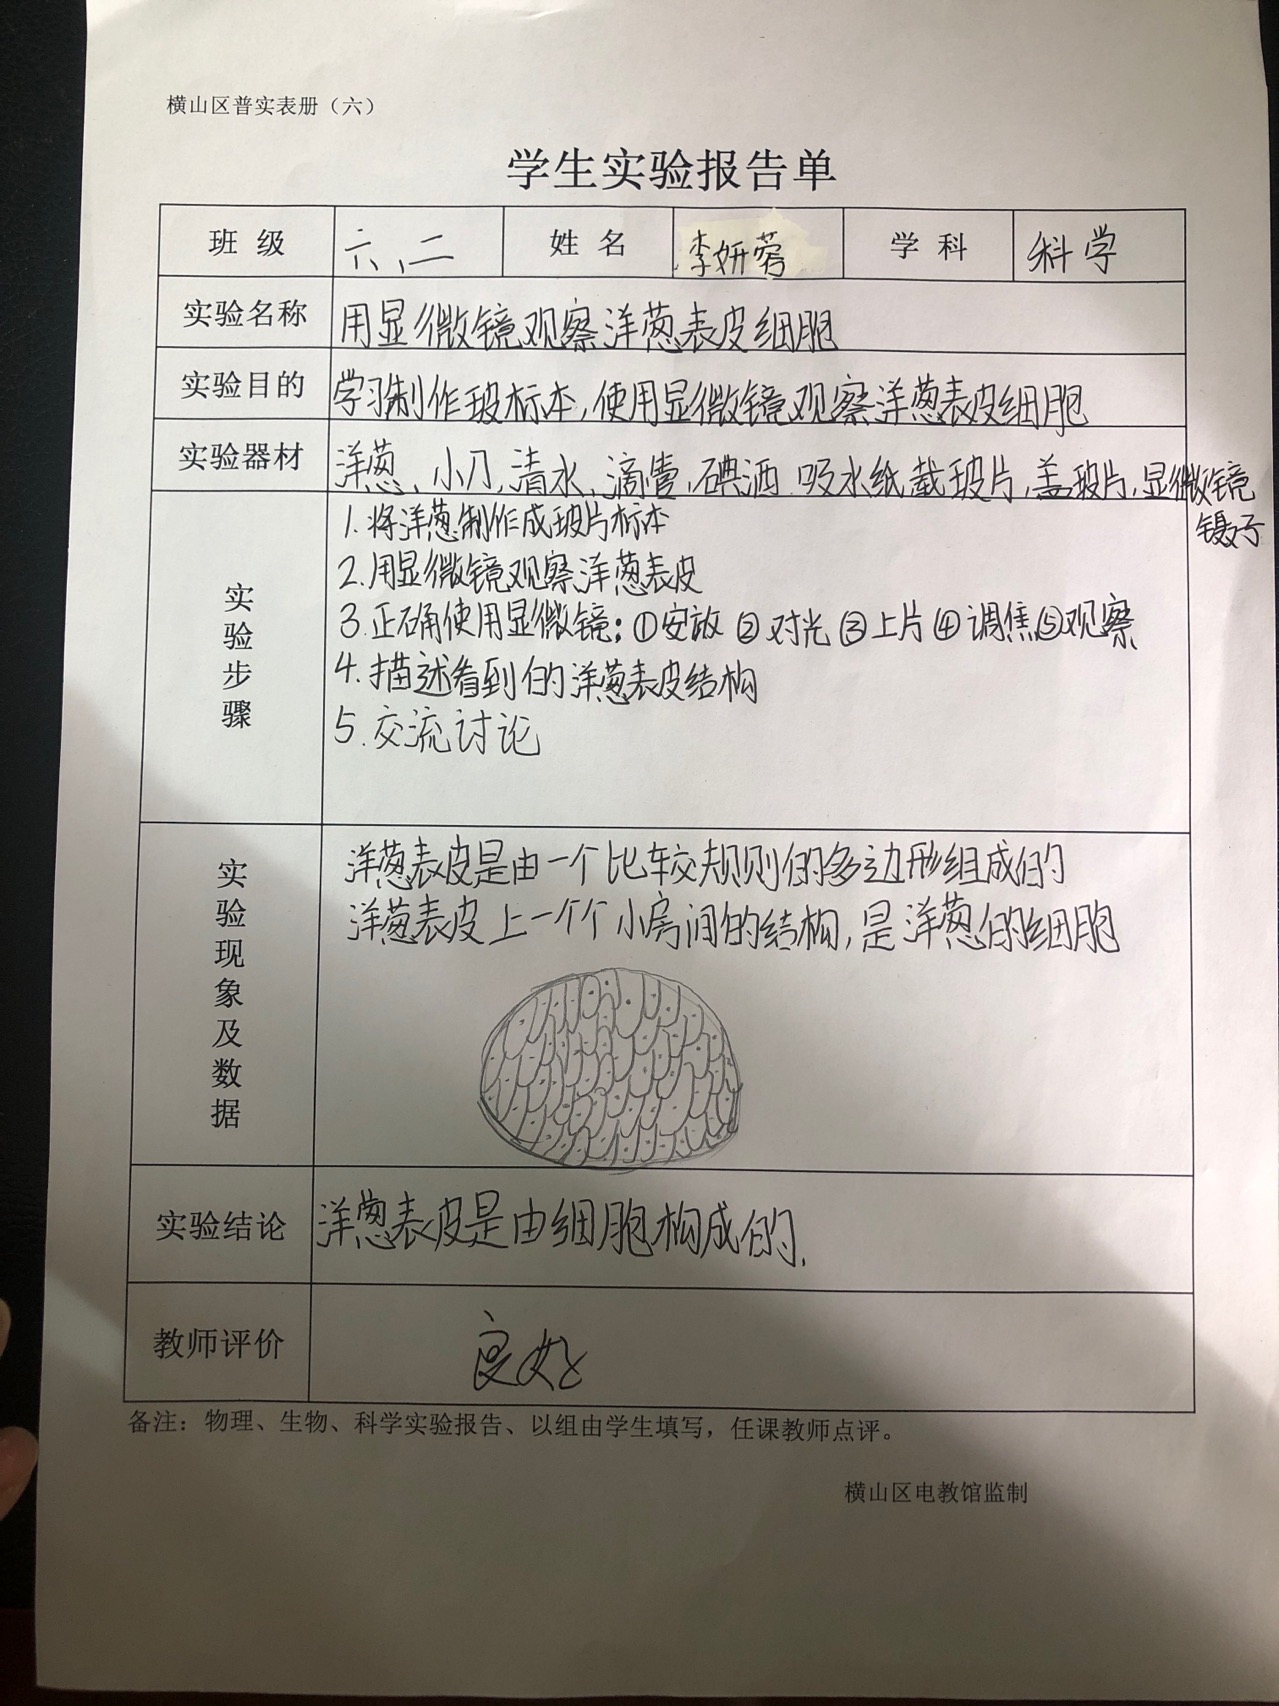 横山区普实表册（六）
学生实验报告单
班级 六、二 姓名 李妍蓉 学科 科学
实验名称 用显微镜观察洋葱表皮细胞
实验目的 学习制作玻标本,使用显微镜观察洋葱表皮细胞
实验器材 洋葱、小刀,清水、滴管,碘酒.吸水纸,载玻片,盖玻片,显微镜
镊子
实验步骤
1.将洋葱制作成玻片标本
2.用显微镜观察洋葱表皮
3.正确使用显微镜:①安放②对光③上片④调焦⑤观察
4.描述看到的洋葱表皮结构
5.交流讨论
实验现象及数据
洋葱表皮是由一个比较规则的多边形组成的
洋葱表皮上一个个小房间的结构,是洋葱的细胞
实验结论 洋葱表皮是由细胞构成的.
教师评价 良好
备注：物理、生物、科学实验报告、以组由学生填写，任课教师点评。
横山区电教馆监制